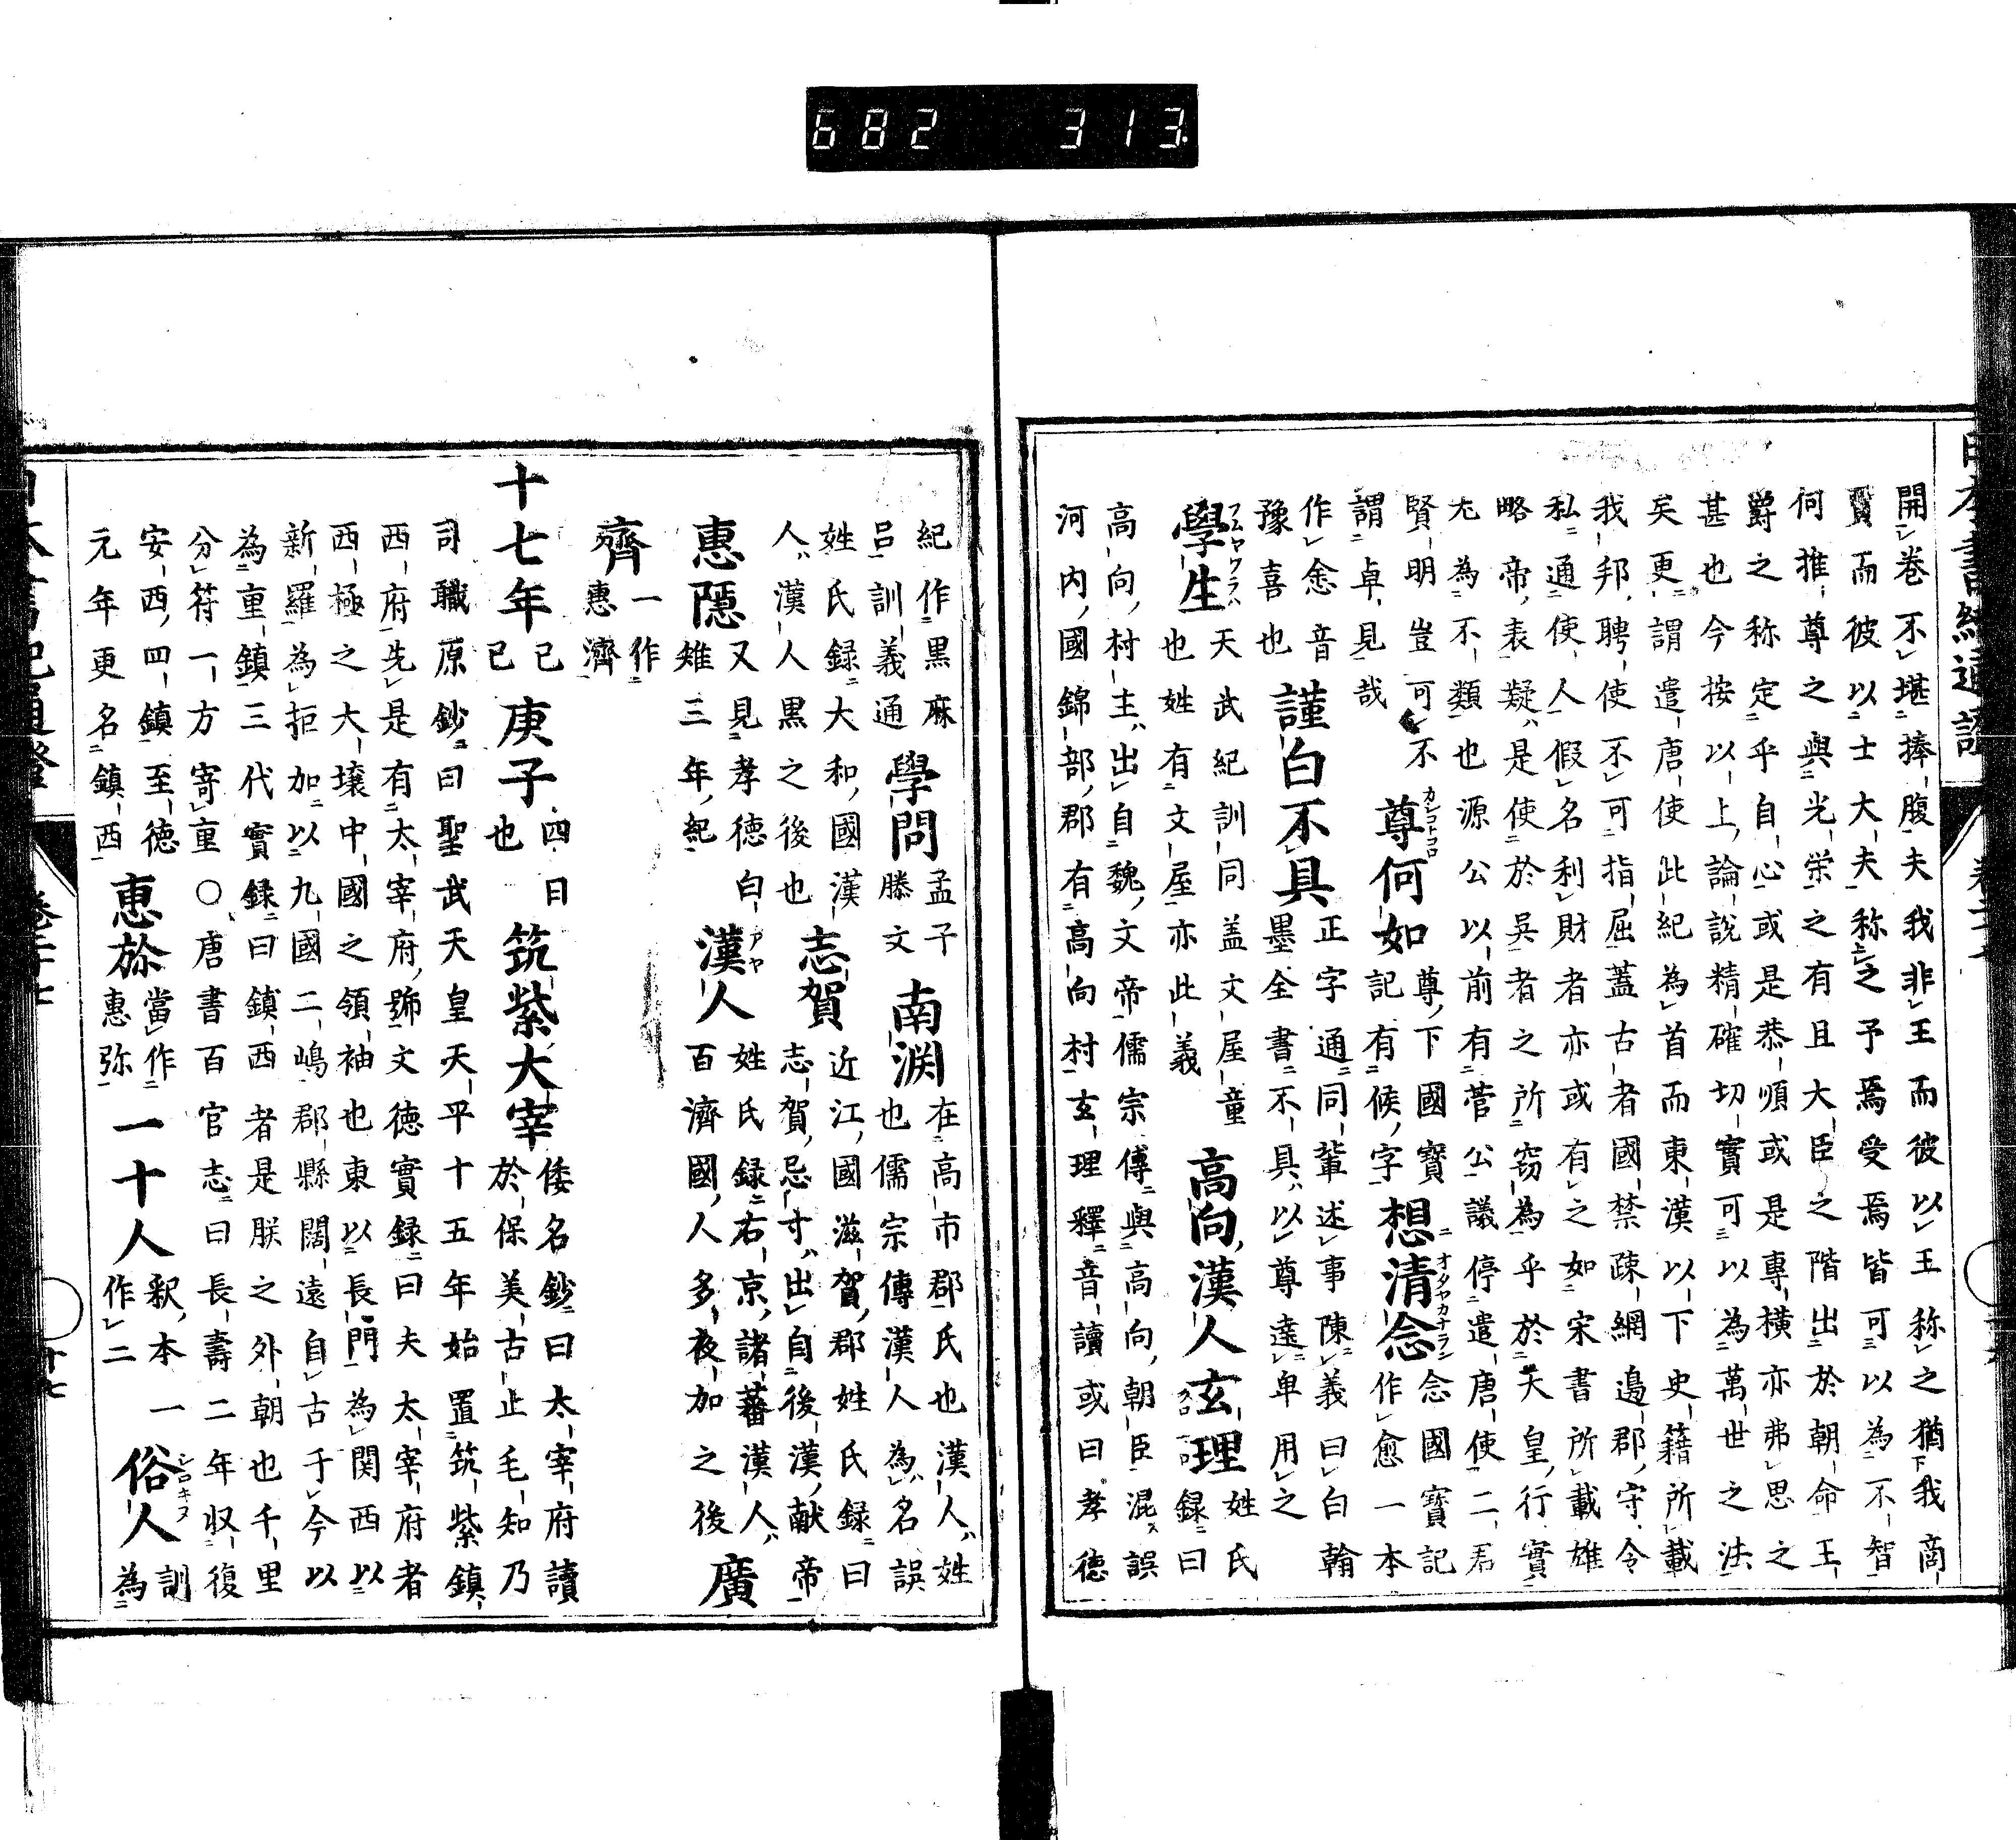 682 313
開卷不堪捧腹夫我非王而彼以王称之猶我商
賈而彼以士大夫称之予焉受焉皆可以為不智
何推尊之與光栄之有且大臣之階出於朝命王
爵之称定乎自心或是恭順或是專横亦弗思之
甚也今按以上論說精確切實可以為萬世之法
矣更謂遣唐使此紀為首而東漢以下史籍所載
我邦聘使不可指屈蓋古者國禁疎網邉郡守令
私通使人假名利財者亦或有之如宋書所載雄
略帝表疑是使於吳者之所窃為乎於天皇行實
尤為不類也源公以前有菅公議停遣唐使二君
賢明豈可不尊何如尊下國寶想清念念國寶記
謂卓見哉記有候字作愈一本
作悆音
豫喜也謹白不具正字通同輩述事陳義曰白翰
墨全書不具以尊遠卑用之
學生天武紀訓同盖文屋童
也姓有文屋亦此義高向漢人玄理姓氏
録曰
高向村主出自魏文帝儒宗傳與高向朝臣混誤
河内國錦部郡有高向村玄理釋音讀或曰孝德
紀作黒麻
呂訓義通學問孟子
滕文南淵在高市郡氏也漢人姓
也儒宗傳漢人為名誤
姓氏録大和國漢
人漢人黒之後也志賀近江國滋賀郡姓氏録曰
志賀忌寸出自後漢献帝
惠隠又見孝德白
雉三年紀漢人姓氏録右京諸蕃漢人
百濟國人多夜加之後廣
齊一作
惠濟
十七年己
已庚子四日
也筑紫大宰倭名鈔曰太宰府讀
於保美古止毛知乃
司職原鈔曰聖武天皇天平十五年始置筑紫鎮
西府先是有太宰府號文徳實録曰夫太宰府者
西極之大壤中國之領袖也東以長門為関西以
新羅為拒加以九國二嶋郡縣闊遠自古于今以
為重鎮三代實録曰鎮西者是朕之外朝也千里
分符一方寄重○唐書百官志曰長壽二年収復
安西四鎮至徳
元年更名鎮西惠於當作
惠弥一十人釈本一
作二俗人訓
為